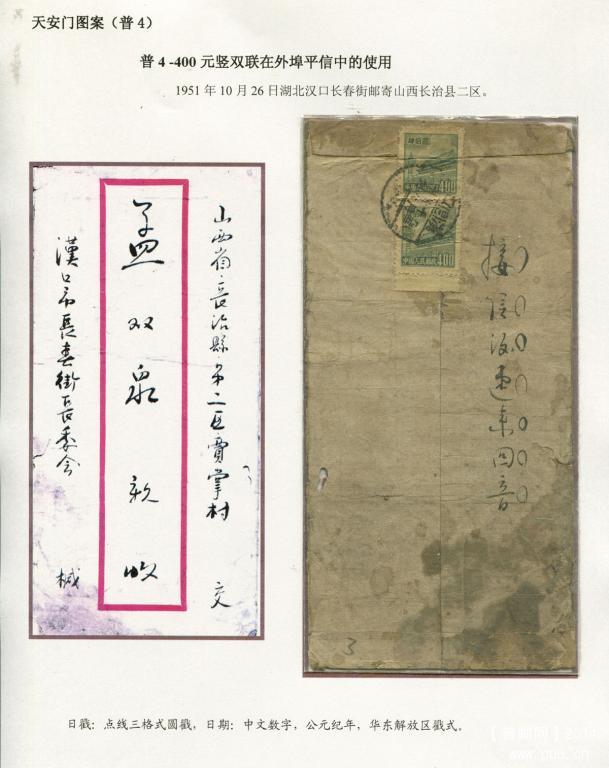 天安门图案（普4）
普4-400元竖双联在外埠平信中的使用
1951年10月26日湖北汉口长春街邮寄山西长治县二区。
山西省長治縣第二區賈掌村 交
孟双泉 親 收
漢口市長春街居委会 械
肆百圓
400
中国人民邮政
400
中国人民邮政
接信後速来回音
3
日戳：点线三格式圆戳，日期：中文数字，公元纪年，华东解放区戳式。